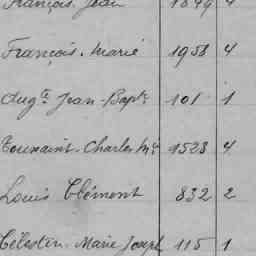 François, Jean 1849 4
François, Marie 1958 4
Augte Jean-Bapte 101 1
Toussaint, Charles Mie 1523 4
Louis Clément 832 2
Célestin, Marie Joseph 115 1